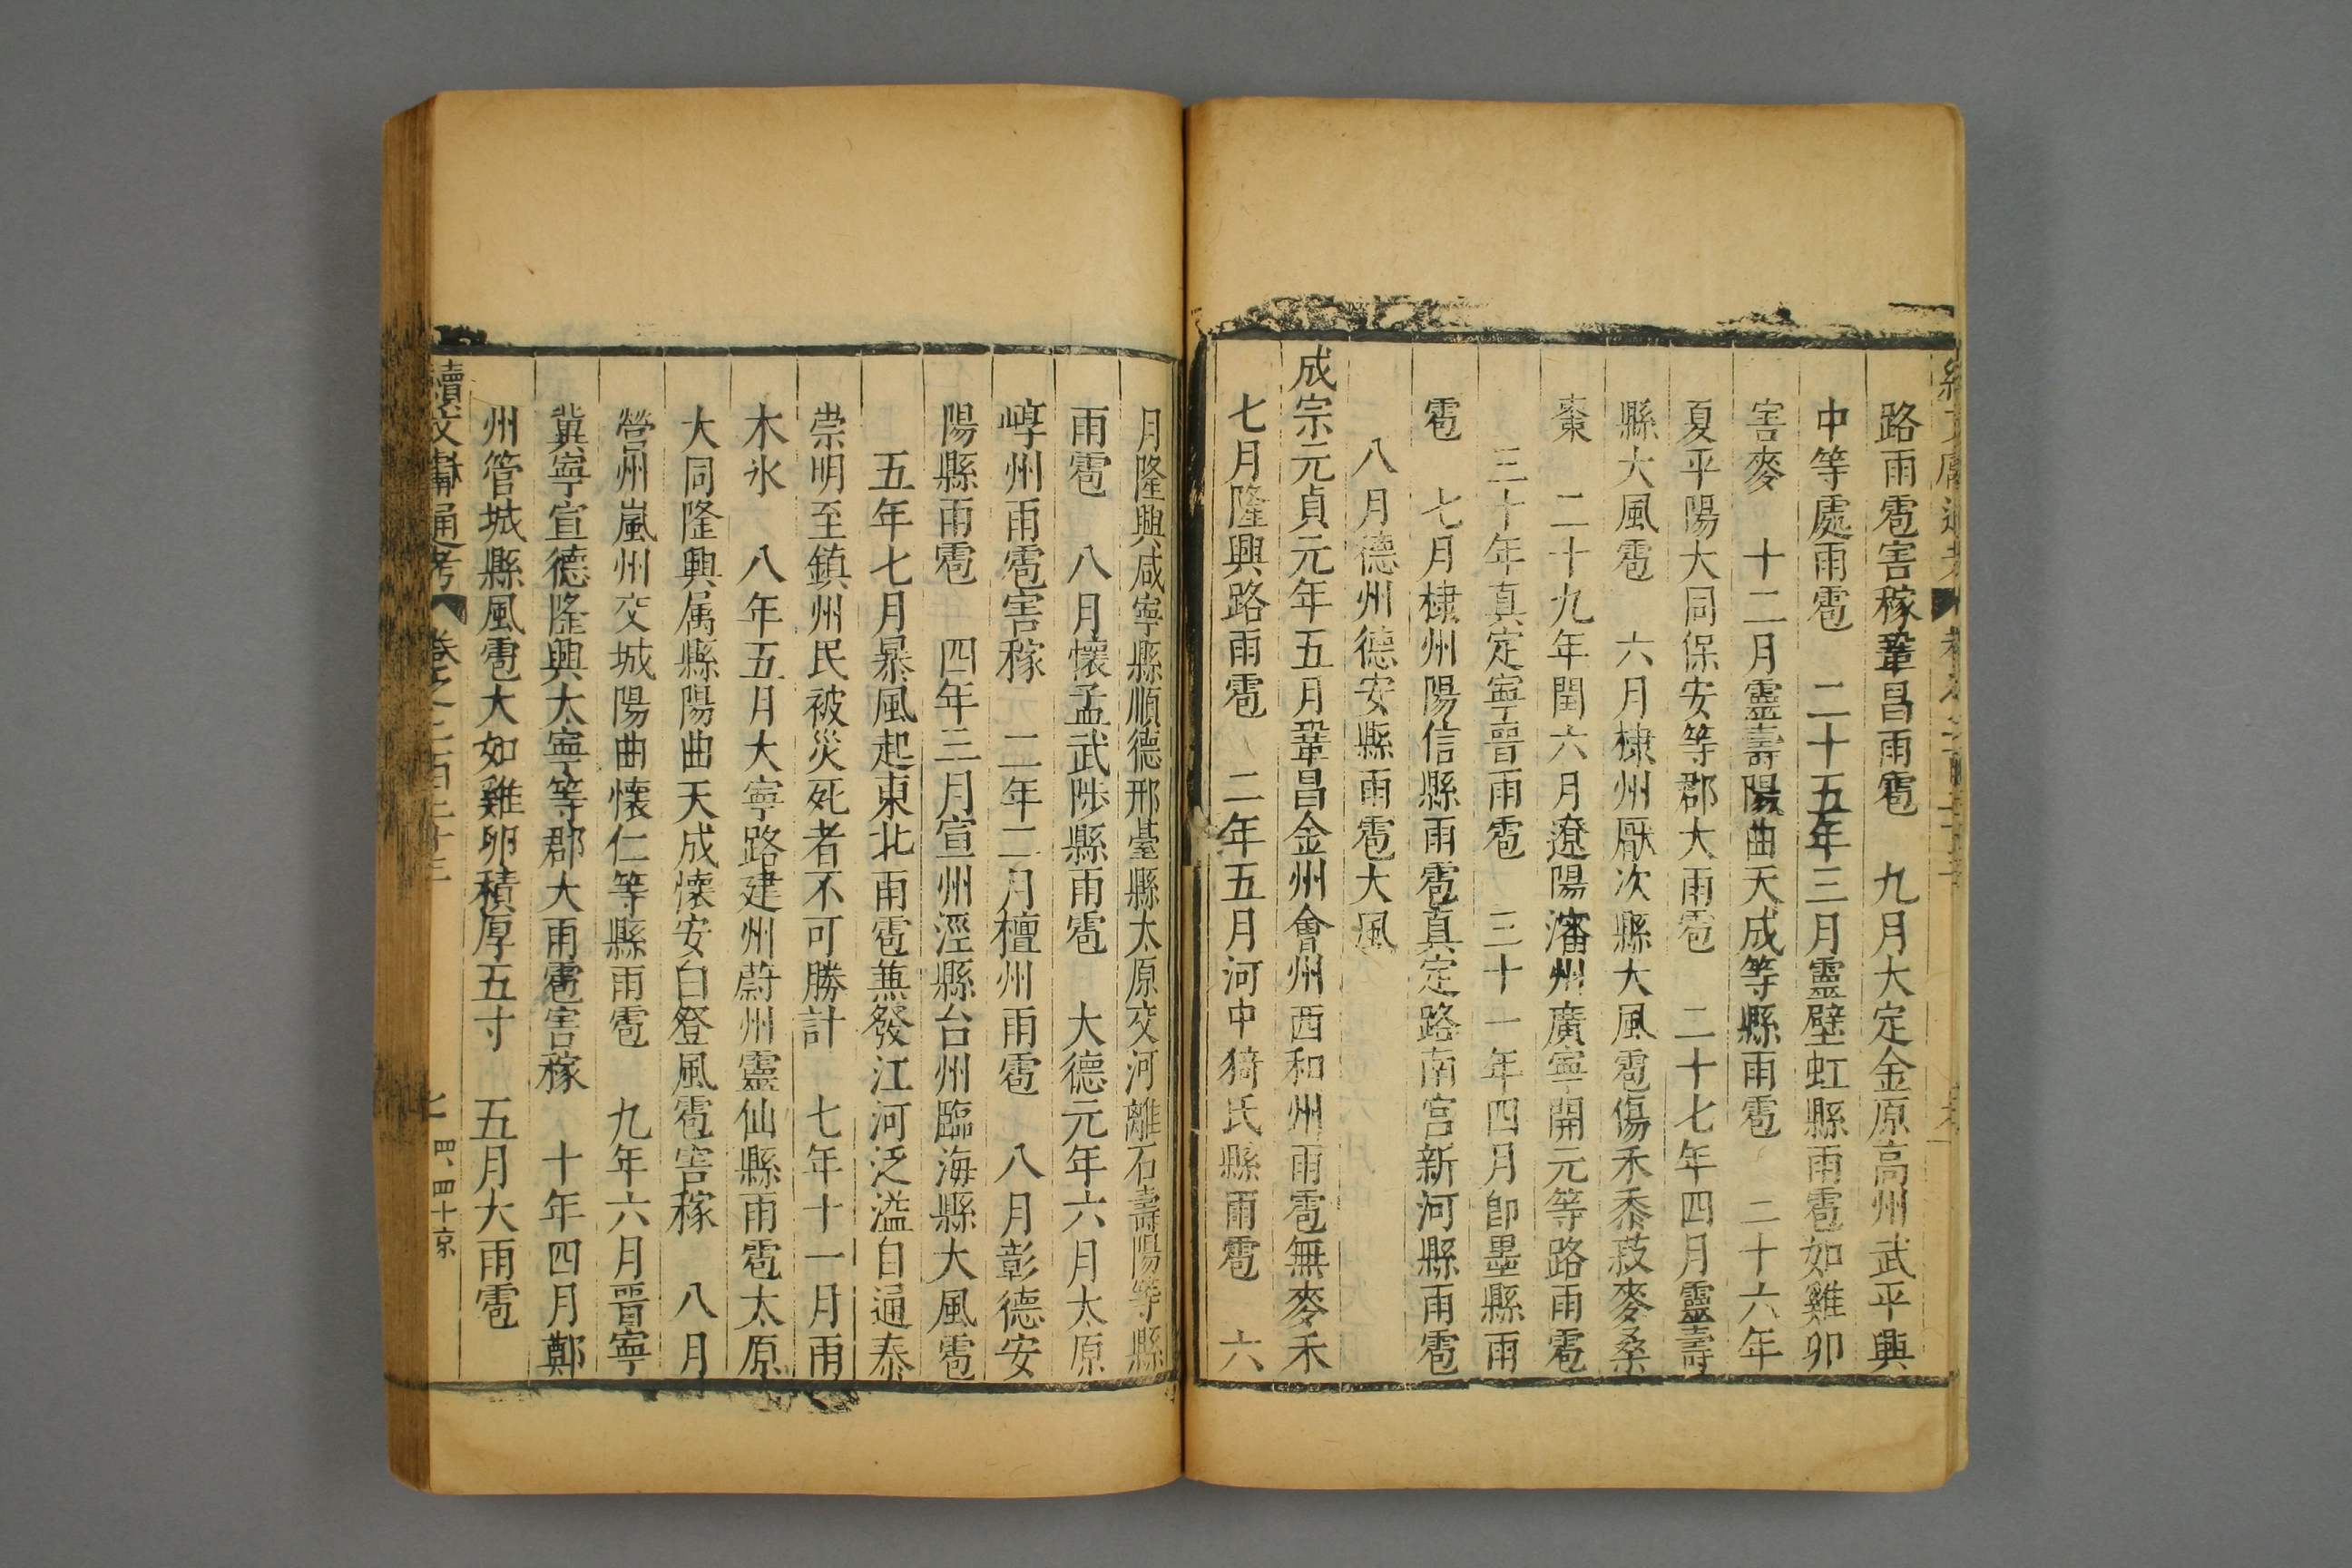 路雨雹害稼鞏昌雨雹　九月大定金原高州武平興
中等處雨雹　二十五年三月靈壁虹縣雨雹如雞卵
害麥　十二月靈壽陽曲天成等縣雨雹　二十六年
夏平陽大同保安等郡大雨雹　二十七年四月靈壽
縣大風雹　六月棣州厭次縣大風雹傷禾黍菽麥桑
棗　二十九年閏六月遼陽瀋州廣寧開元等路雨雹
三十年真定寧晉雨雹　三十一年四月卽墨縣雨
雹　七月棣州陽信縣雨雹真定路南宮新河縣雨雹
八月德州德安縣雨雹大風
成宗元貞元年五月鞏昌金州會州西和州雨雹無麥禾
七月隆興路雨雹　二年五月河中猗氏縣雨雹　六
月隆興咸寧縣順德邢臺縣太原交河離石壽陽等縣
雨雹　八月懷孟武陟縣雨雹　大德元年六月太原
崞州雨雹害稼　二年二月檀州雨雹　八月彰德安
陽縣雨雹　四年三月宣州涇縣台州臨海縣大風雹
五年七月暴風起東北雨雹蒹發江河泛溢自通泰
崇明至鎮州民被災死者不可勝計　七年十一月雨
木氷　八年五月大寧路建州蔚州靈仙縣雨雹太原
大同隆興属縣陽曲天成懷安白登風雹害稼　八月
營州嵐州交城陽曲懷仁等縣雨雹　九年六月晋寧
冀寧宣德隆興太寧等郡大雨雹害稼　十年四月鄭
州管城縣風雹大如雞卵積厚五寸　五月大雨雹
續文獻通考　卷之二百二十三　七　四、四十京